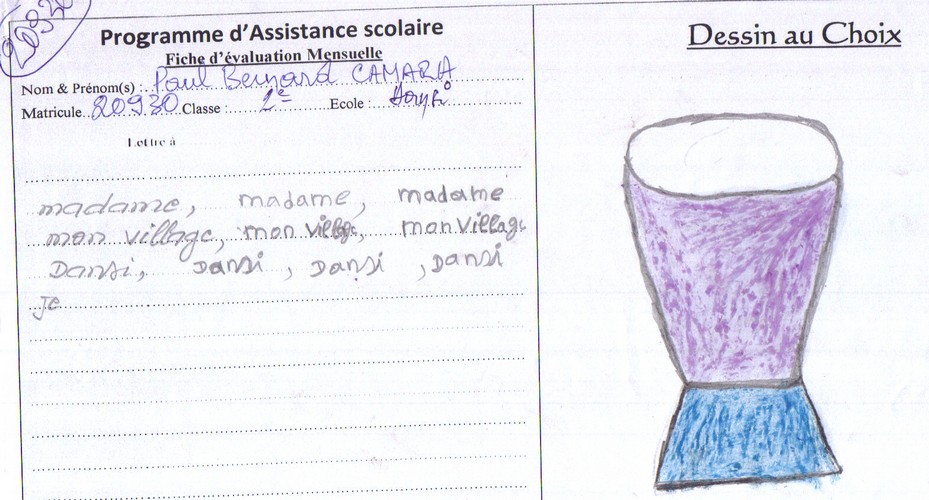 20930
Programme d'Assistance scolaire
Fiche d'évaluation Mensuelle
Dessin au Choix
Nom & Prénom(s) : Paul Bernard CAMARA
Matricule 20930 Classe : 2e Ecole :
Lettre à
madame, madame, madame
mon village, mon village, mon village
Dansi, Dansi, Dansi, Dansi
je